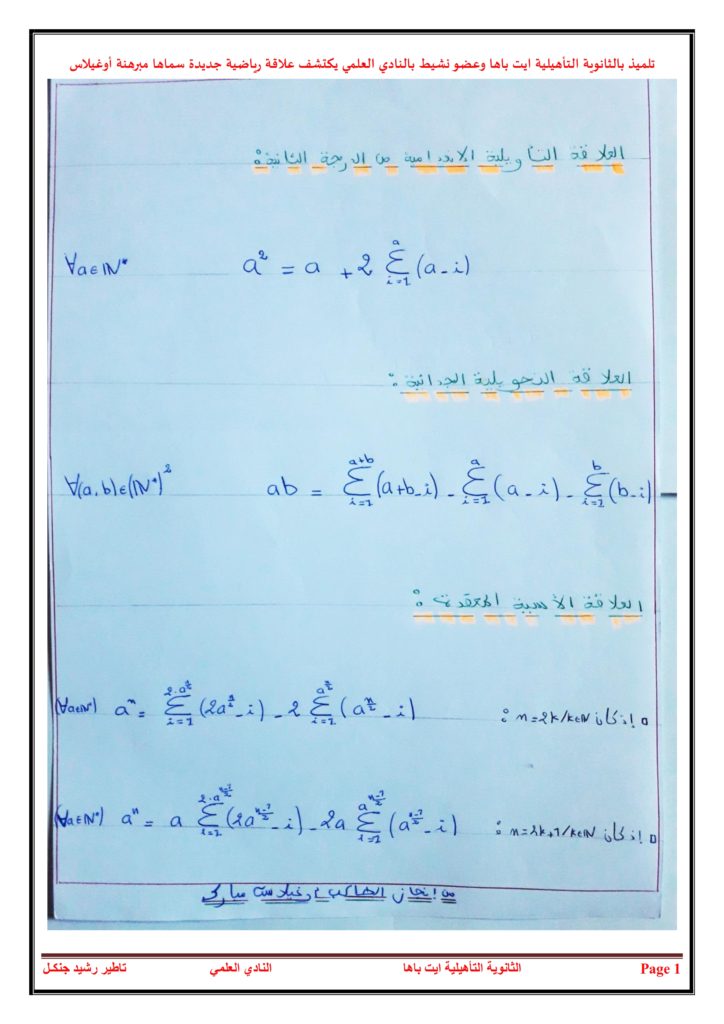 تلميذ بالثانوية التأهيلية ايت باها وعضو نشيط بالنادي العلمي يكتشف علاقة رياضية جديدة سماها مبرهنة أوغيلاس
العلاقة التأويلية الاندرامية من الدرجة الثانية:
∀a∈ℕ* a² = a + 2 ∑_{i=1}^{a} (a-i)
العلاقة التحويلية الجدائية:
∀(a,b)∈(ℕ*)² ab = ∑_{i=1}^{a+b} (a+b-i) - ∑_{i=1}^{a} (a-i) - ∑_{i=1}^{b} (b-i)
العلاقة الأسية المعقدة:
▫ إذ كان n=2k/k∈ℕ : (∀a∈ℕ*) aⁿ = ∑_{i=1}^{2·a^{n/2}} (2a^{n/2}-i) - 2 ∑_{i=1}^{a^{n/2}} (a^{n/2}-i)
▫ إذ كان n=2k+1/k∈ℕ : (∀a∈ℕ*) aⁿ = a ∑_{i=1}^{2·a^{(n-1)/2}} (2a^{(n-1)/2}-i) - 2a ∑_{i=1}^{a^{(n-1)/2}} (a^{(n-1)/2}-i)
من إنجاز الطالب أوغيلاست مبارك
تاطير رشيد جنكل النادي العلمي الثانوية التأهيلية ايت باها Page 1